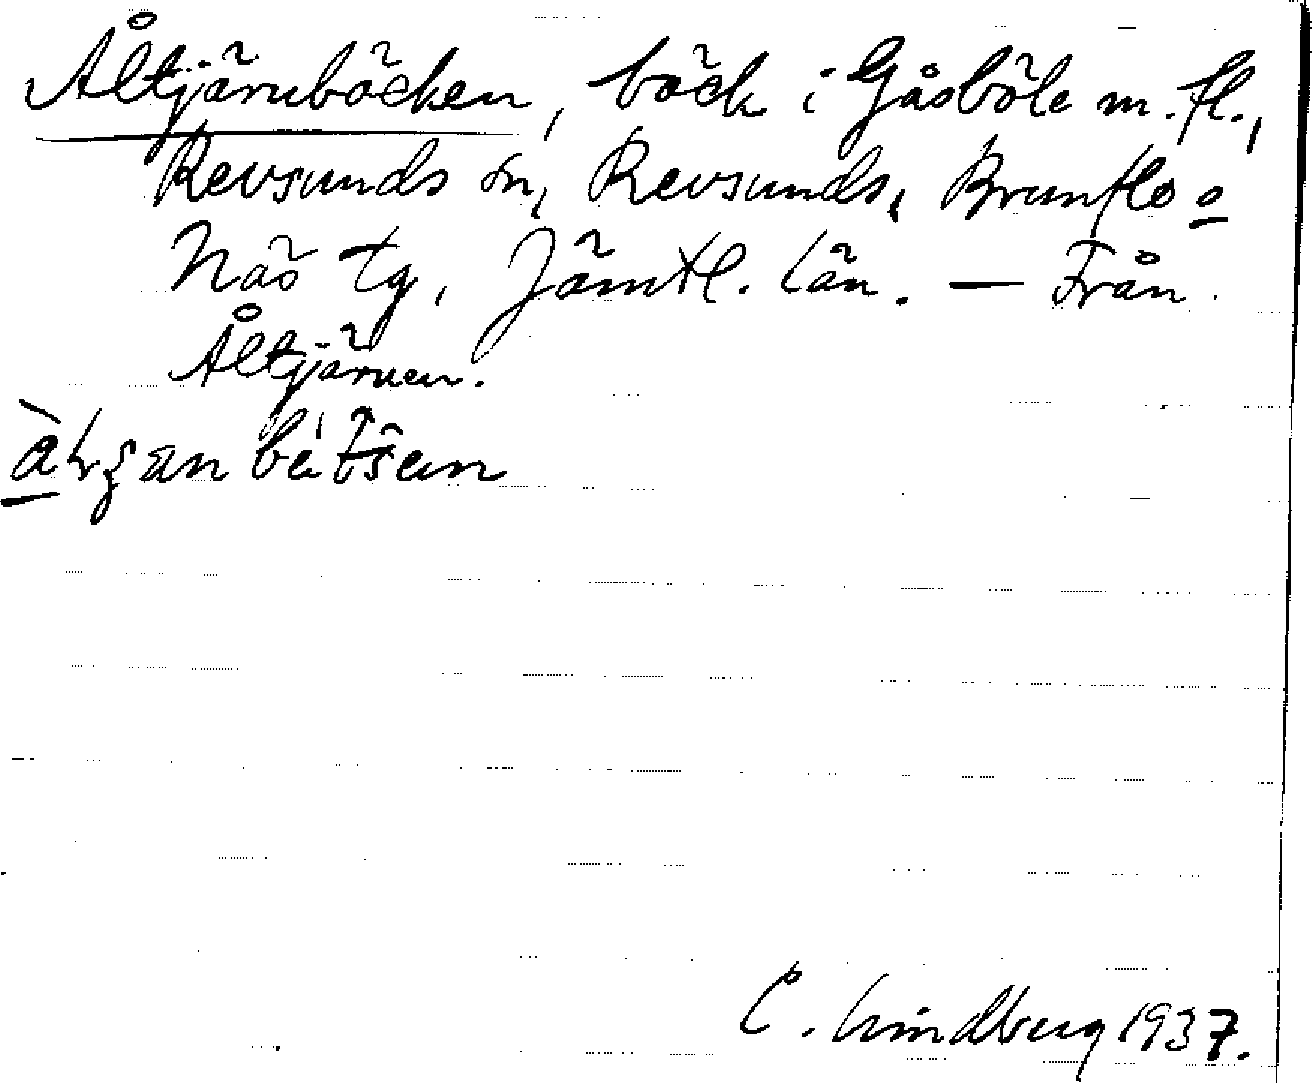 Åltjärnbäcken, bäck i Gåsböle m. fl.,
Revsunds sn, Revsunds, Brunflo o
Näs tg, Jämtl. län. — Från
Åltjärnen.
C. Lindberg 1937.